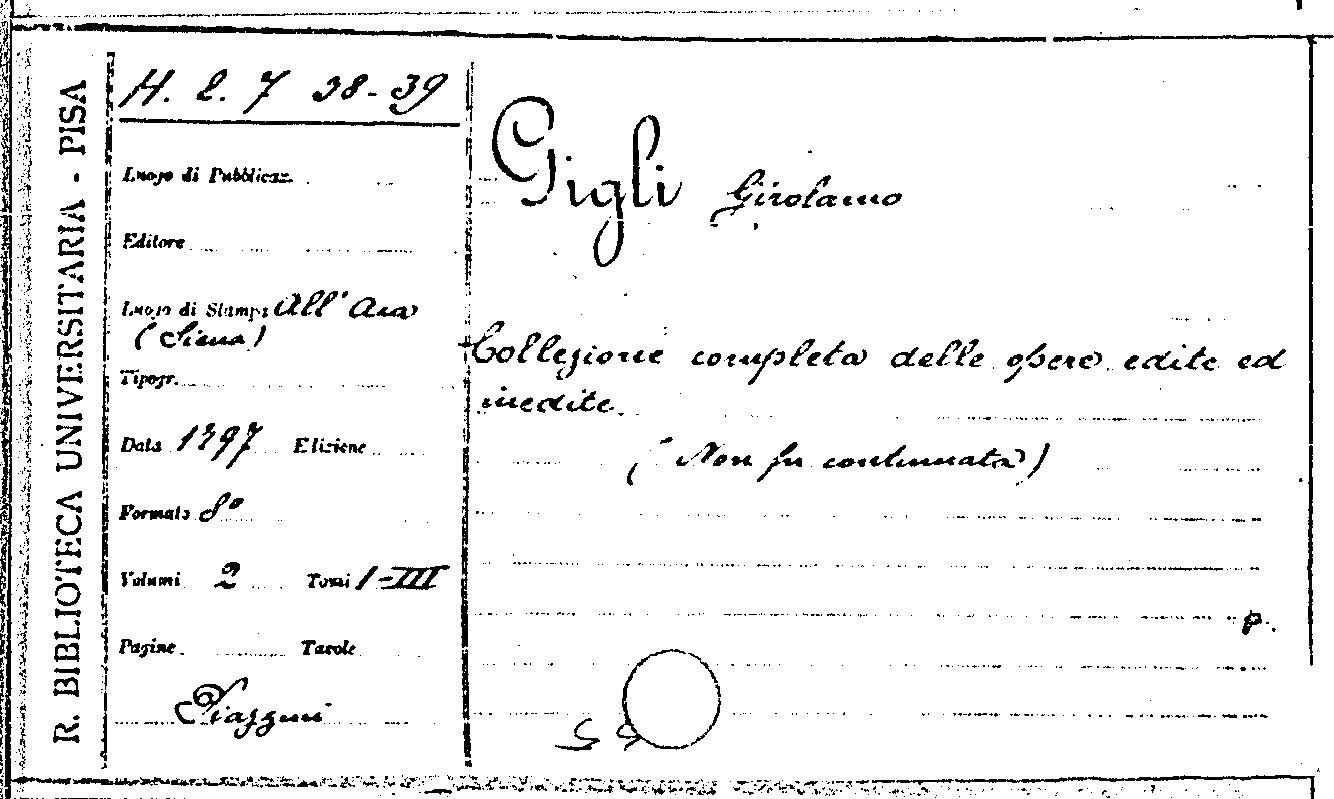 R. BIBLIOTECA UNIVERSITARIA - PISA
H. l. 7 38-39
Luogo di Pubblicaz.
Editore
Luogo di Stampa All' Aia
(Siena)
Tipogr.
Data 1797 Edizione
Formato 8°
Volumi 2 Tomi I-III
Pagine Tavole
Piazzini
Gigli Girolamo
Collezione completa delle opere edite ed
inedite.
(Non fu continuata)
p.